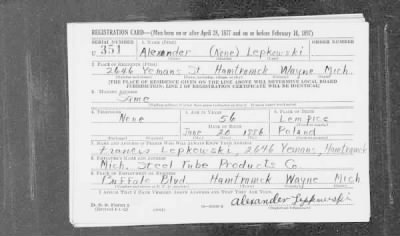 REGISTRATION CARD—(Men born on or after April 28, 1877 and on or before February 16, 1897)
SERIAL NUMBER 1. NAME (Print) ORDER NUMBER
U 351 Alexander (None) Lepkowski
2. PLACE OF RESIDENCE (Print)
2646 Yemans St. Hamtramck Wayne Mich.
[THE PLACE OF RESIDENCE GIVEN ON THE LINE ABOVE WILL DETERMINE LOCAL BOARD
JURISDICTION; LINE 2 OF REGISTRATION CERTIFICATE WILL BE IDENTICAL]
3. MAILING ADDRESS
Same
4. TELEPHONE 5. AGE IN YEARS 6. PLACE OF BIRTH
None 56 Lempice
DATE OF BIRTH
June 20 1886 Poland
7. NAME AND ADDRESS OF PERSON WHO WILL ALWAYS KNOW YOUR ADDRESS
Francis Lepkowski, 2646 Yemans, Hamtramck
8. EMPLOYER'S NAME AND ADDRESS
Mich. Steel Tube Products Co.
9. PLACE OF EMPLOYMENT OR BUSINESS
Buffalo Blvd. Hamtramck Wayne Mich
I AFFIRM THAT I HAVE VERIFIED ABOVE ANSWERS AND THAT THEY ARE TRUE.
D. S. S. Form 1
Alexander Lepkowski